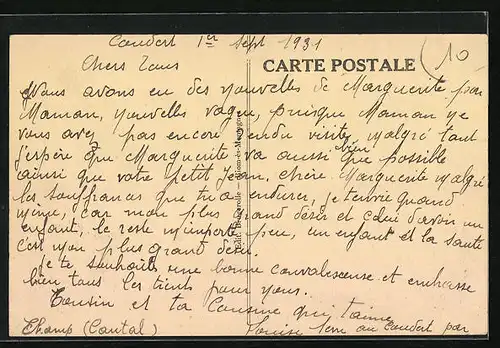 Coudert 1er Sept 1931
10
Chers Tous
CARTE POSTALE
Nous avons eu des nouvelles de Marguerite par
Maman, nouvelles vagues, puisque Maman ne
vous avez pas encore rendu visite, malgré tant
j'espère que Marguerite va aussi bien que possible
ainsi que votre petit Jean, chère Marguerite malgré
les souffrances que tu a endurer, je t'envie quand
même, car mon plus grand désir et celui d'avoir un
enfant, le reste m'importe peu, un enfant et la santé
c'est mon plus grand désir.
Je te souhaite une bonne convalissense et embrasse
bien tous les tiens pour nous.
Cousin et ta Cousine qui t'aime
Champ (Cantal) Louise au Coudert par
Edit.